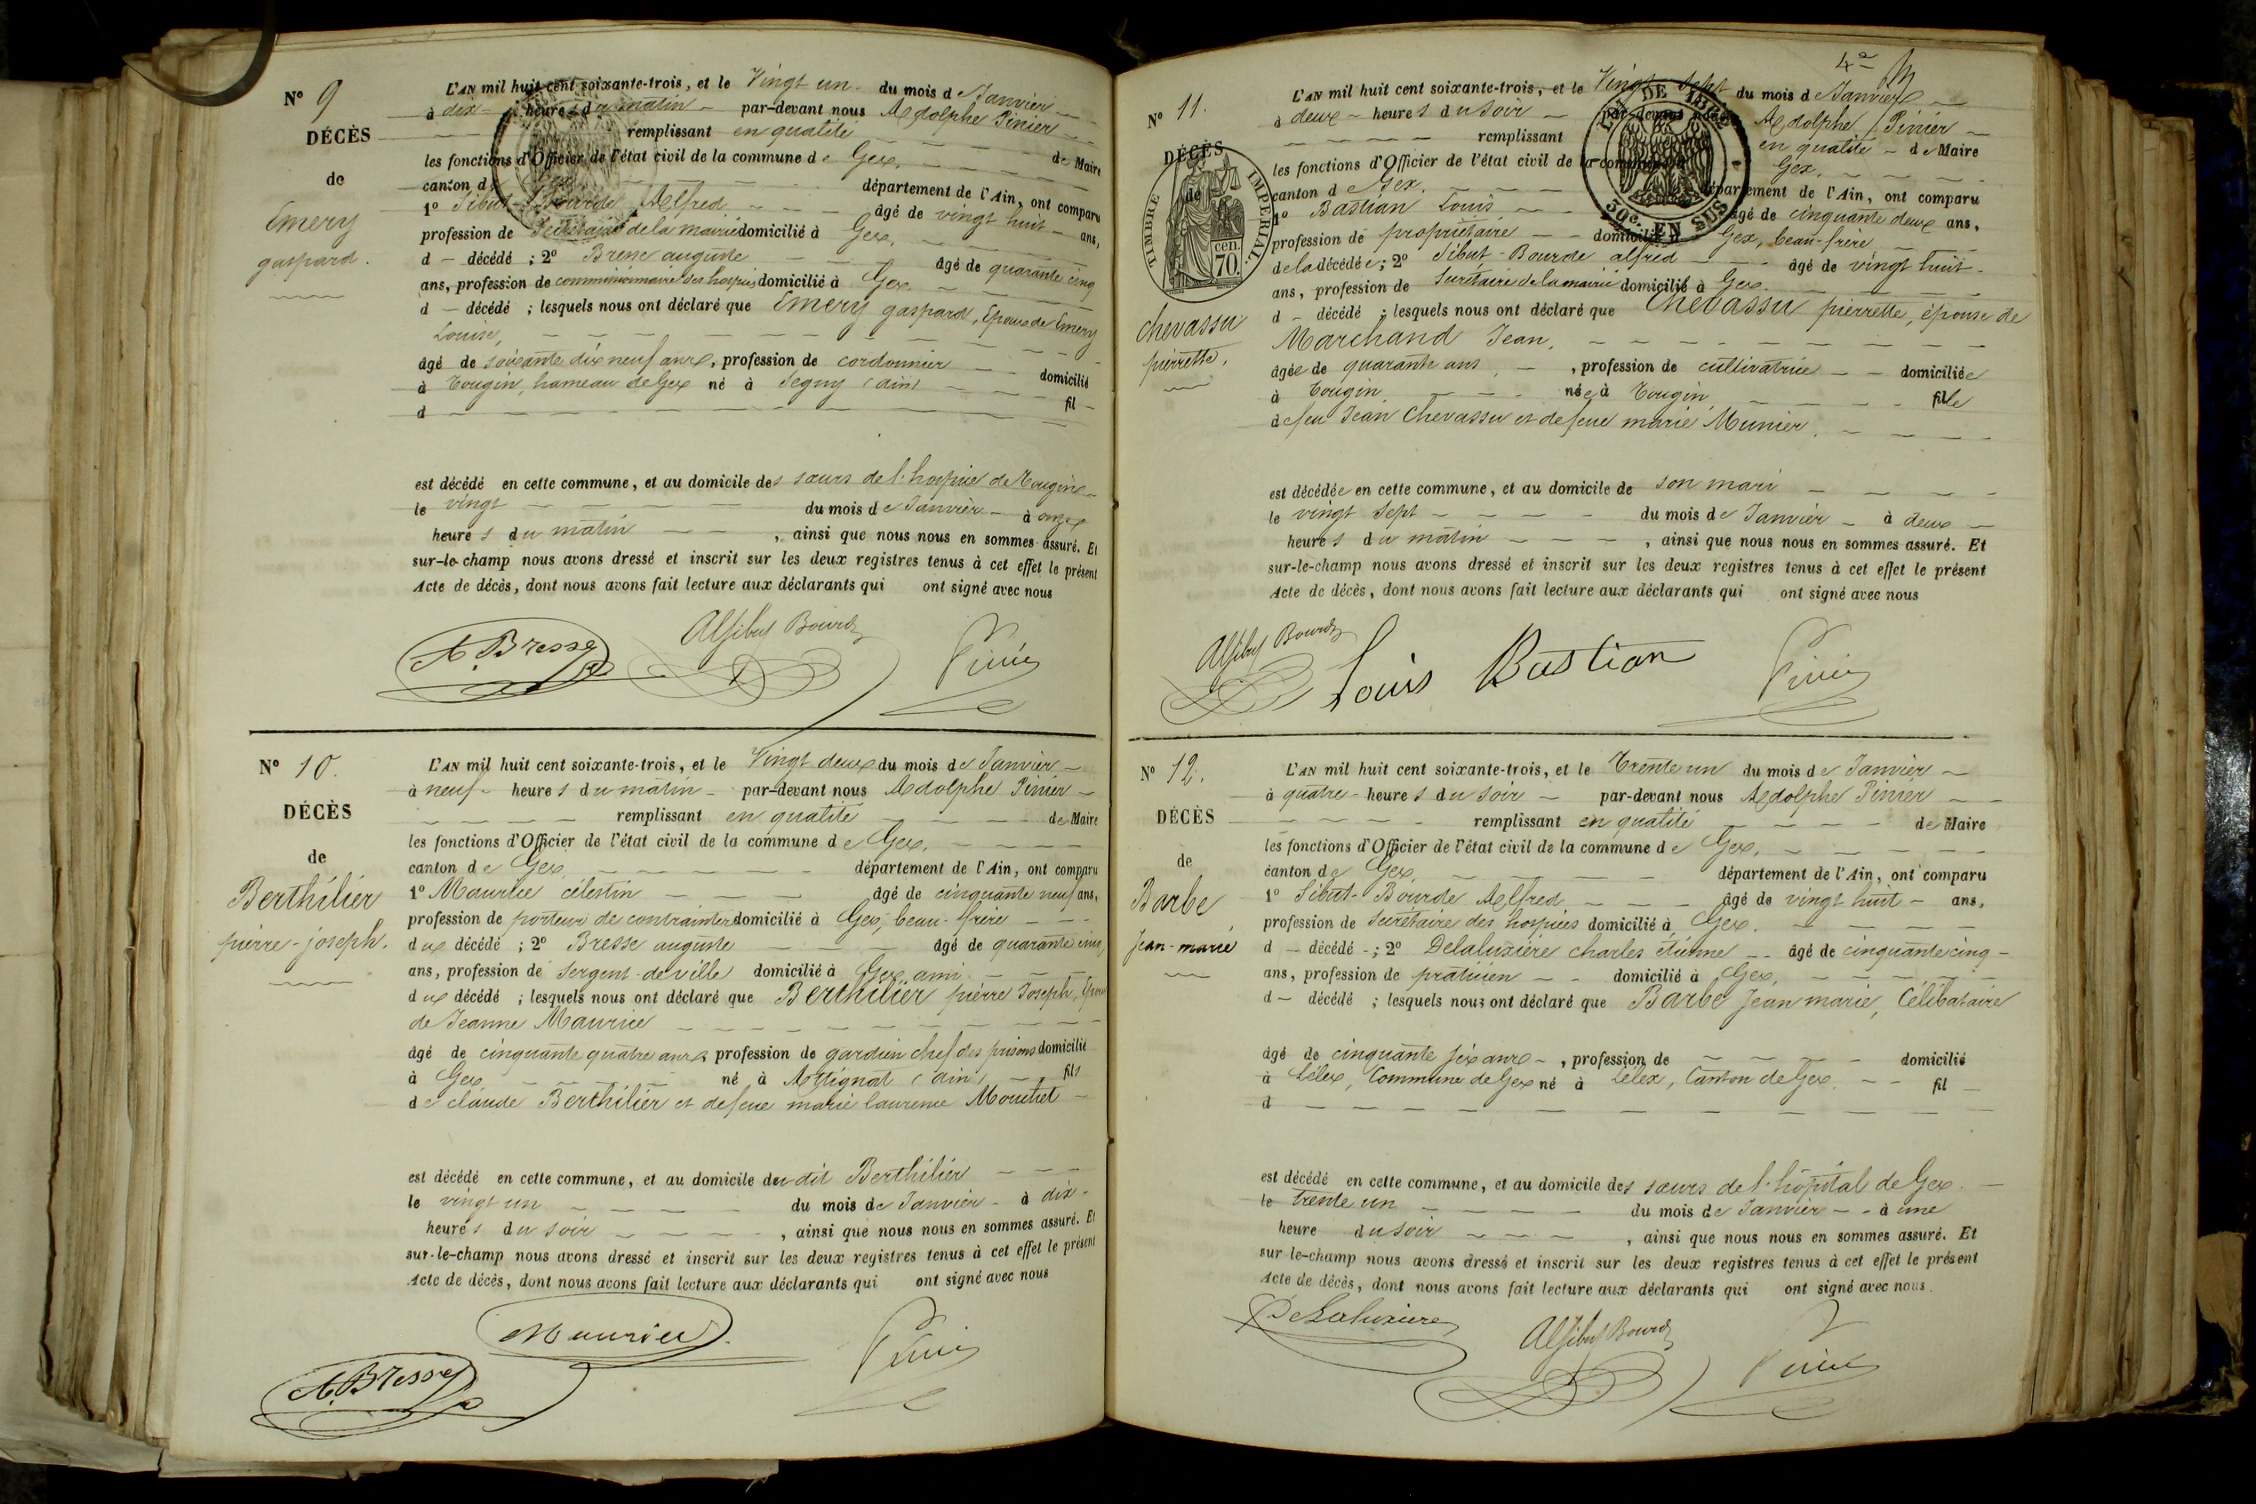 Nº 9
DÉCÈS
de
Emery
gaspard.
L'AN mil huit cent soixante-trois, et le Vingt un du mois de Janvier
à dix heures du matin par-devant nous Adolphe Pinier
remplissant en qualité de Maire
les fonctions d'Officier de l'état civil de la commune de Gex,
canton de Gex département de l'Ain, ont comparu
1º Sibut-Bourde Alfred âgé de vingt huit ans,
profession de Secrétaire de la mairie domicilié à Gex,
d décédé ; 2º Bresse auguste âgé de quarante cinq
ans, profession de commissionnaire des hospices domicilié à Gex
d décédé ; lesquels nous ont déclaré que Emery gaspard, Epoux de Emery
Louise,
âgé de soixante dix neuf ans, profession de cordonnier domicilié
à Tougin, hameau de Gex né à Segny (ain) fil
d
est décédé en cette commune, et au domicile des sœurs de l'hospice de Tougin
le vingt du mois de Janvier à onze
heures du matin, ainsi que nous nous en sommes assuré. Et
sur-le-champ nous avons dressé et inscrit sur les deux registres tenus à cet effet le présent
Acte de décès, dont nous avons fait lecture aux déclarants qui ont signé avec nous
A. Bresse Alf Sibut Bourde Pinier
Nº 10.
DÉCÈS
de
Berthilier
pierre-joseph.
L'AN mil huit cent soixante-trois, et le Vingt deux du mois de Janvier
à neuf heures du matin par-devant nous Adolphe Pinier
remplissant en qualité de Maire
les fonctions d'Officier de l'état civil de la commune de Gex,
canton de Gex département de l'Ain, ont comparu
1º Maurice célestin âgé de cinquante neuf ans,
profession de porteur de contraintes domicilié à Gex, beau-frère
dux décédé ; 2º Bresse auguste âgé de quarante cinq
ans, profession de Sergent-de-ville domicilié à Gex ami
dux décédé ; lesquels nous ont déclaré que Berthilier pierre Joseph, Epoux
de Jeanne Maurice
âgé de cinquante quatre ans, profession de gardien chef des prisons domicilié
à Gex né à Attignat (ain) fils
de claude Berthilier et de feue marie laurence Mouchet
est décédé en cette commune, et au domicile dudit Berthilier
le vingt un du mois de Janvier à dix
heures du soir, ainsi que nous nous en sommes assuré. Et
sur-le-champ nous avons dressé et inscrit sur les deux registres tenus à cet effet le présent
Acte de décès, dont nous avons fait lecture aux déclarants qui ont signé avec nous
Maurice Pinier
A. Bresse
Nº 11.
DÉCÈS
de
TIMBRE IMPERIAL
70 cen.
chevassu
pierrette,
L'AN mil huit cent soixante-trois, et le Vingt Sept du mois de Janvier
à deux heures du soir par-devant nous Adolphe Pinier
remplissant en qualité de Maire
les fonctions d'Officier de l'état civil de la commune Gex,
canton de Gex, département de l'Ain, ont comparu
1º Bastian Louis âgé de cinquante deux ans,
profession de propriétaire domicilié à Gex, beau-frère
de la décédée ; 2º Sibut-Bourde alfred âgé de vingt huit
ans, profession de Secrétaire de la mairie domicilié à Gex
d décédé ; lesquels nous ont déclaré que Chevassu pierrette, épouse de
Marchand Jean,
âgée de quarante ans, profession de cultivatrice domiciliée
à Tougin née à Tougin fille
de feu Jean Chevassu et de feue marie Munier.
est décédée en cette commune, et au domicile de son mari
le vingt Sept du mois de Janvier à deux
heures du matin, ainsi que nous nous en sommes assuré. Et
sur-le-champ nous avons dressé et inscrit sur les deux registres tenus à cet effet le présent
Acte de décès, dont nous avons fait lecture aux déclarants qui ont signé avec nous
Alf Sibut Bourde Louis Bastian Pinier
Nº 12.
DÉCÈS
de
Barbe
Jean-marie
L'AN mil huit cent soixante-trois, et le Trente un du mois de Janvier
à quatre heures du soir par-devant nous Adolphe Pinier
remplissant en qualité de Maire
les fonctions d'Officier de l'état civil de la commune de Gex,
canton de Gex, département de l'Ain, ont comparu
1º Sibut-Bourde Alfred âgé de vingt huit ans,
profession de Secrétaire des hospices domicilié à Gex.
d décédé ; 2º Delaluxière charles étienne âgé de cinquante cinq
ans, profession de praticien domicilié à Gex,
d décédé ; lesquels nous ont déclaré que Barbe Jean marie, Célibataire
âgé de cinquante six ans, profession de domicilié
à Lélex, Commune de Gex né à Lélex, Canton de Gex fil
d
est décédé en cette commune, et au domicile des sœurs de l'hôpital de Gex
le trente un du mois de Janvier à une
heure du soir, ainsi que nous nous en sommes assuré. Et
sur-le-champ nous avons dressé et inscrit sur les deux registres tenus à cet effet le présent
Acte de décès, dont nous avons fait lecture aux déclarants qui ont signé avec nous.
Delaluxière Alf Sibut Bourde Pinier